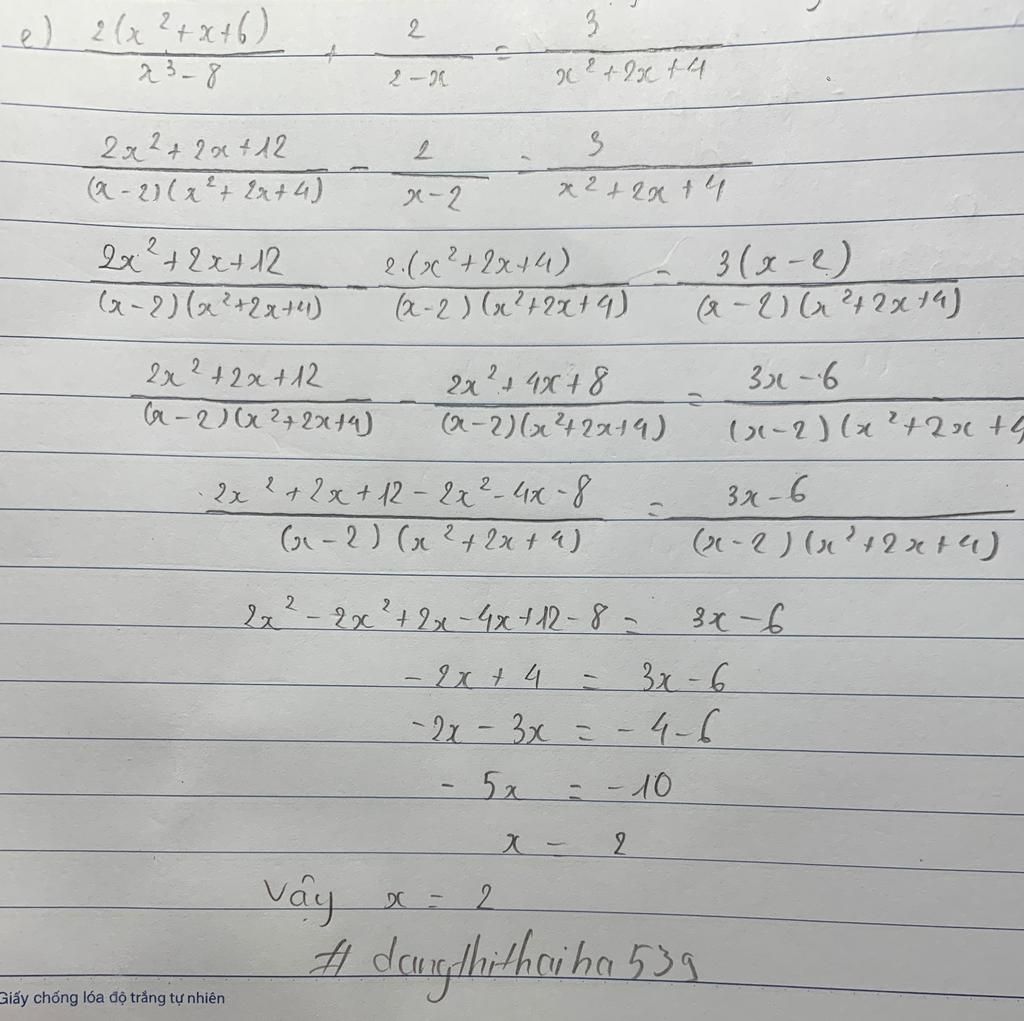 e) 2(x²+x+6)/x³-8 + 2/2-x = 3/x²+2x+4
2x²+2x+12/(x-2)(x²+2x+4) - 2/x-2 = 3/x²+2x+4
2x²+2x+12/(x-2)(x²+2x+4) - 2.(x²+2x+4)/(x-2)(x²+2x+4) = 3(x-2)/(x-2)(x²+2x+4)
2x²+2x+12/(x-2)(x²+2x+4) - 2x²+4x+8/(x-2)(x²+2x+4) = 3x-6/(x-2)(x²+2x+4
2x²+2x+12-2x²-4x-8/(x-2)(x²+2x+4) = 3x-6/(x-2)(x²+2x+4)
2x²-2x²+2x-4x+12-8 = 3x-6
-2x+4 = 3x-6
-2x-3x = -4-6
-5x = -10
x = 2
Vậy x = 2
# dangthithaiha539
Giấy chống lóa độ trắng tự nhiên